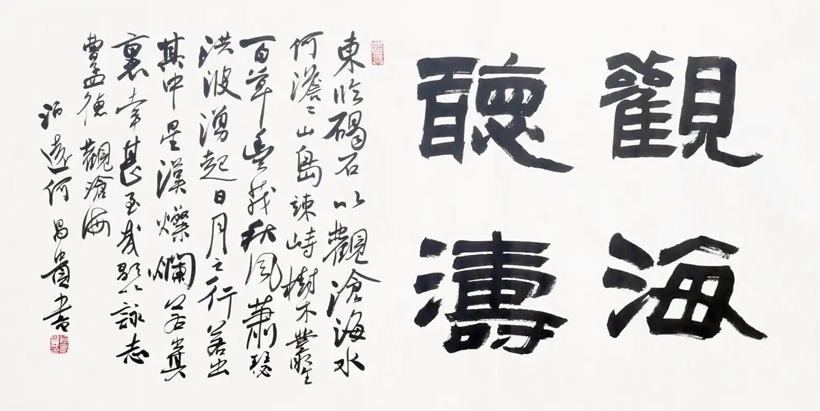 觀海
聽濤
東臨碣石以觀滄海水
何澹々山島竦峙樹木叢生
百草豐茂秋風蕭瑟
洪波湧起日月之行若出
其中星漢燦爛若其
裏幸甚至哉歌以詠志
曹孟德觀滄海
泊遠何昌貴書